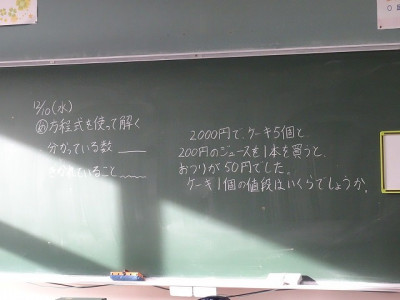 12/10(水)
め方程式を使って解く
分かっている数
きかれていること
2000円で、ケーキ5個と
200円のジュースを1本を買うと、
おつりが50円でした。
ケーキ1個の値段はいくらでしょうか。